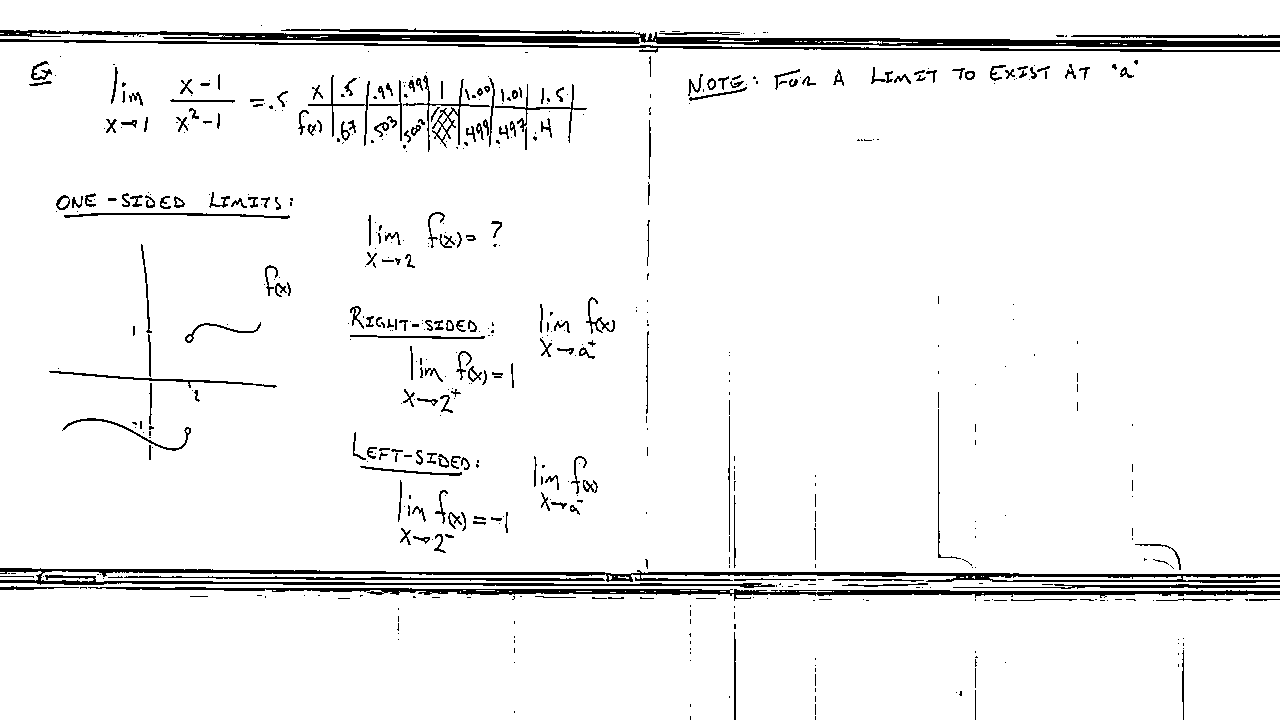 Ex lim x→1 (x-1)/(x²-1) = .5
x | .5 | .99 | .999 | 1 | 1.001 | 1.01 | 1.5
f(x) | .67 | .503 | .5002 | | .499 | .497 | .4
ONE-SIDED LIMITS:
f(x)
1
2
-1
lim x→2 f(x) = ?
RIGHT-SIDED: lim x→a⁺ f(x)
lim x→2⁺ f(x) = 1
LEFT-SIDED: lim x→a⁻ f(x)
lim x→2⁻ f(x) = -1
NOTE: FOR A LIMIT TO EXIST AT "a"